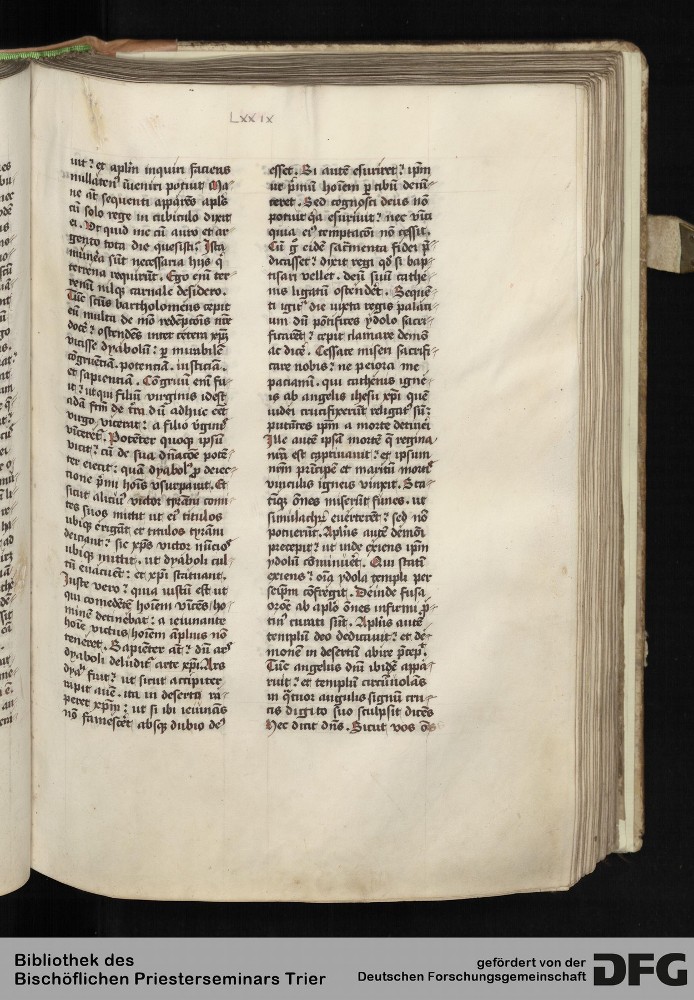 Lxxix
uit: et aplm̄ inquiri faciens
nullaten9 īueniri potuit Ma
ne āt sequenti apparēs apls
cū solo rege in cubiculo dixit
ei. Vt quid me cū auro et ar
gento tota die quesisti? Ista
munēa sūt necessaria hijs q̄
terrena requirūt. Ego em̄ ter-
renū nilq3 carnale desidero.
Tūc sctūs bartholomeus cepit
eū multa de mō redēptōis nrē
docē: ostendēs inter cetera xp̄m
vicisse dyabolū: p̲ mirabilē
cōgruēciā. potenciā. iusticiā.
et sapienciā. Cōgruū em̄ fu-
it: ut qui filiū virginis idest
adā frm̄ de tr̄a dū adhuc eēt
virgo vicerat: a filio v̄ginis
vīceret̄. Potēter quoq3 ipsū
vicit: cū de sua dn̄acōe potē-
ter eiecit: quā dyabol9 p̲ deiec-
cione p̄mi hoīs vsurpauit. Et
sicut alicui9 victor tyrāni comi-
tes suos mittit ut ei9 titulos
ubiq3 erigāt et titulos tyrāni
deiciant: sic xp̄s victor nūcios
ubiq3 mittit. ut dyaboli cul-
tū euacuēt: et xp̄i statuant.
Iuste vero: quia iustū est ut
qui comedētē hoīem vīcēs/ ho-
minē detinebat: a ieiunante
hoīe victus/ hoīem āplius nō
teneret. Sapiēter āt: dū ars
dyaboli deludit̄ arte xp̄i. Ars
dyab̄ fuit: ut sicut accipiter
rapit auē. ita in deserto ra-
peret xpm̄: ut si ibi ieiunās
nō famesceret absq3 dubio de9
esset. Si autē esuriret: ipm̄
ut p̄mū hoīem p̲ cibū deiū-
ceret. Sed cognosci deus nō
potuit q̄a esuriuit: nec vīci
quia ei9 temptacōi nō cessit.
Cū g̊ eidē sacr̄menta fidei p̄-
dicasset: dixit regi q̇d si bap-
tisari vellet. deū suū cathe-
nis ligatū ostenderet. Sequē-
ti igit̄ die iuxta regis palaci-
um dū pōtifices ydolo sacri-
ficarēt: cepit clamare demō
ac dicē. Cessate miseri sacrifi-
care nobis: ne peiora me
paciami. qui cathenis igne-
is ab angelis ihesu xp̄i quē
iudei crucifixerūt religat9 sū:
putātes ipm̄ a morte detineri
Ille autē ipsā mortē q̄ regina
nr̄a est captiuauit: et ipsum
nr̄m prīcipē et maritū mortis
vinculis igneis vinxit. Sta-
tīq3 ōnes miserūt funes. ut
simulachrū euerterēt: sed nō
potuerūt. Aplūs autē demōi
precepit: ut inde exiens ipm̄
ydolū cōminuēt. Qui statī
exiens: oīa ydola templi per
seipm̄ cōfregit. Deinde fusa
orōe ab aplo ōnes infirmi p̲-
tin9 curati sūt. Aplūs autē
templū deo dedicauit: et de-
monē in desertū abire p̄cep̄.
Tūc angelus dn̄i ibidē appa-
ruit: et templū circūuolans
in q̄tuor angulis signū cru-
cis digito suo sculpsit dicēs
Hec dicit dn̄s. Sicut vos ōs
Bibliothek des
Bischöflichen Priesterseminars Trier
gefördert von der
Deutschen Forschungsgemeinschaft
DFG